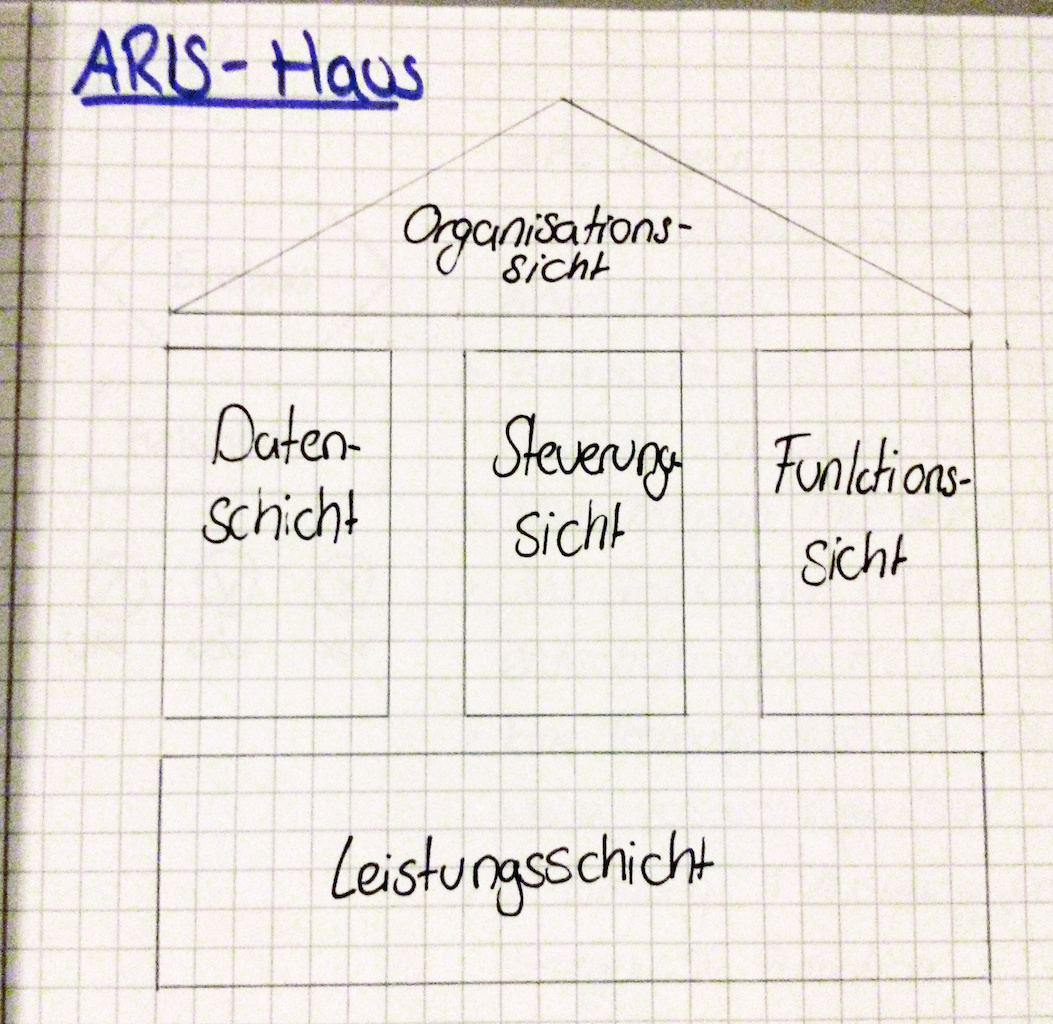 ARIS-Haus
Organisations-
sicht
Daten-
schicht
Steuerungs-
sicht
Funktions-
sicht
Leistungsschicht